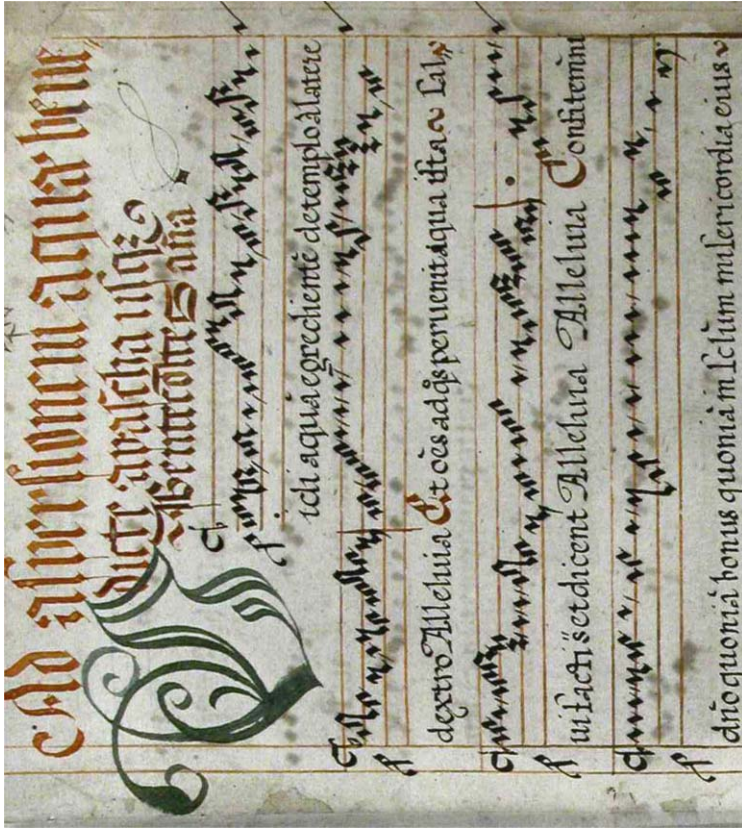 Ad aspersionem aquæ bene
dicte apascha usq3
Pentecostes aña
Vidi aquā egrediente de templo à latere
dextro Alleluia Et oēs ad q̄s peruenit aqua ista Sal
ui facti s̄t et dicent Alleluia Alleluia Confitemini
dño quoniā bonus quoniā in sēlum misericordia eius